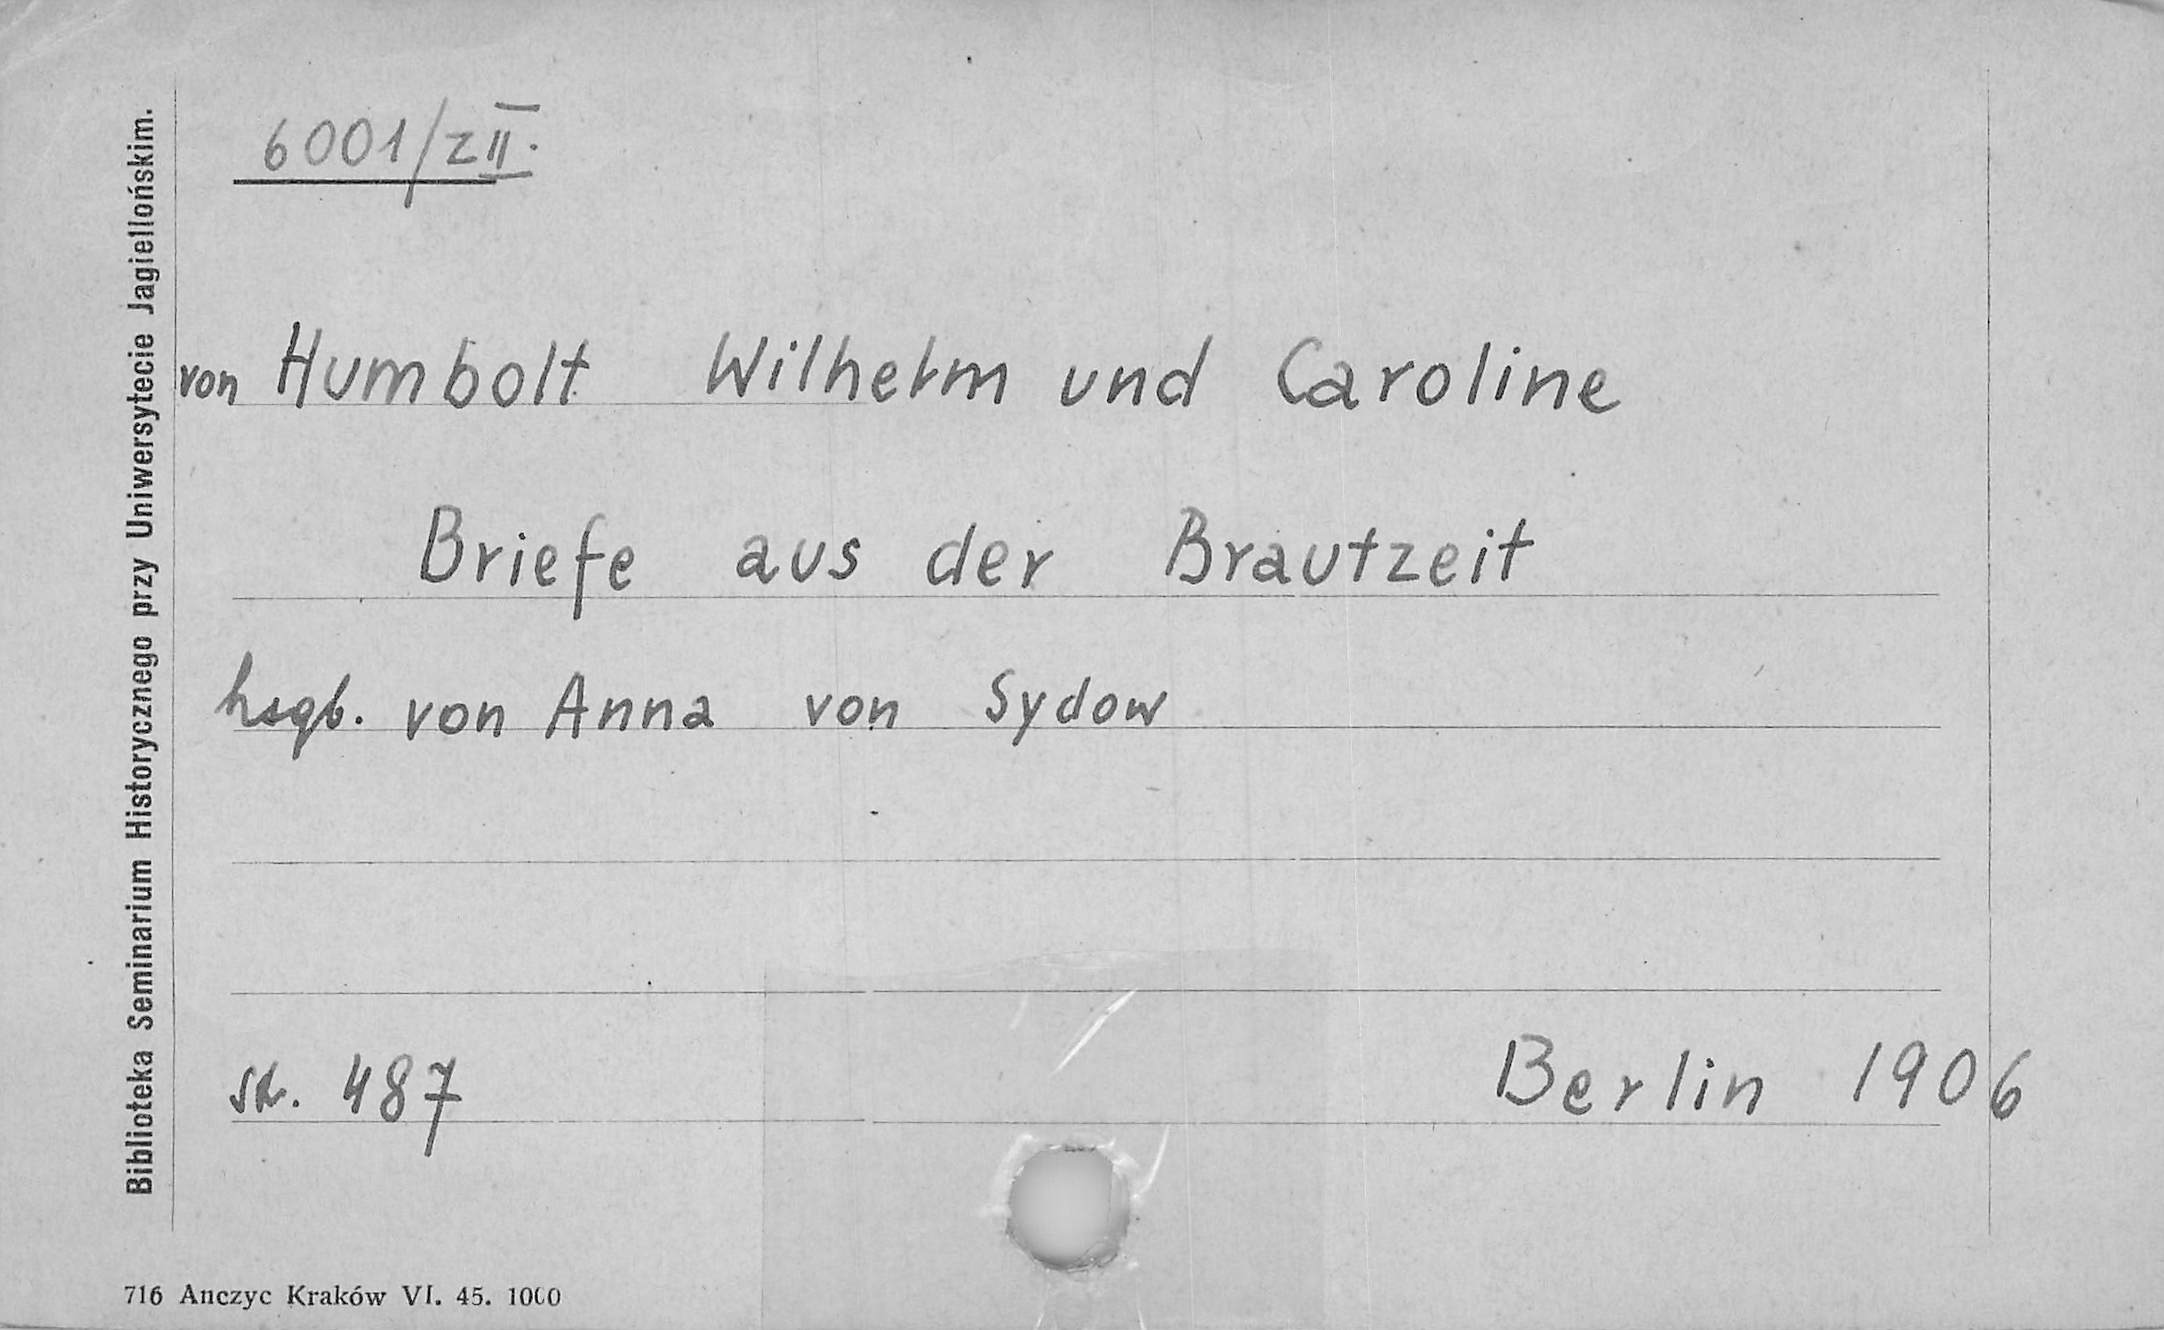 6001/z II.
von Humbolt Wilhelm und Caroline
Briefe aus der Brautzeit
hsgb. von Anna von Sydow
str. 487 Berlin 1906
Biblioteka Seminarium Historycznego przy Uniwersytecie Jagiellońskim.
716 Anczyc Kraków VI. 45. 1000